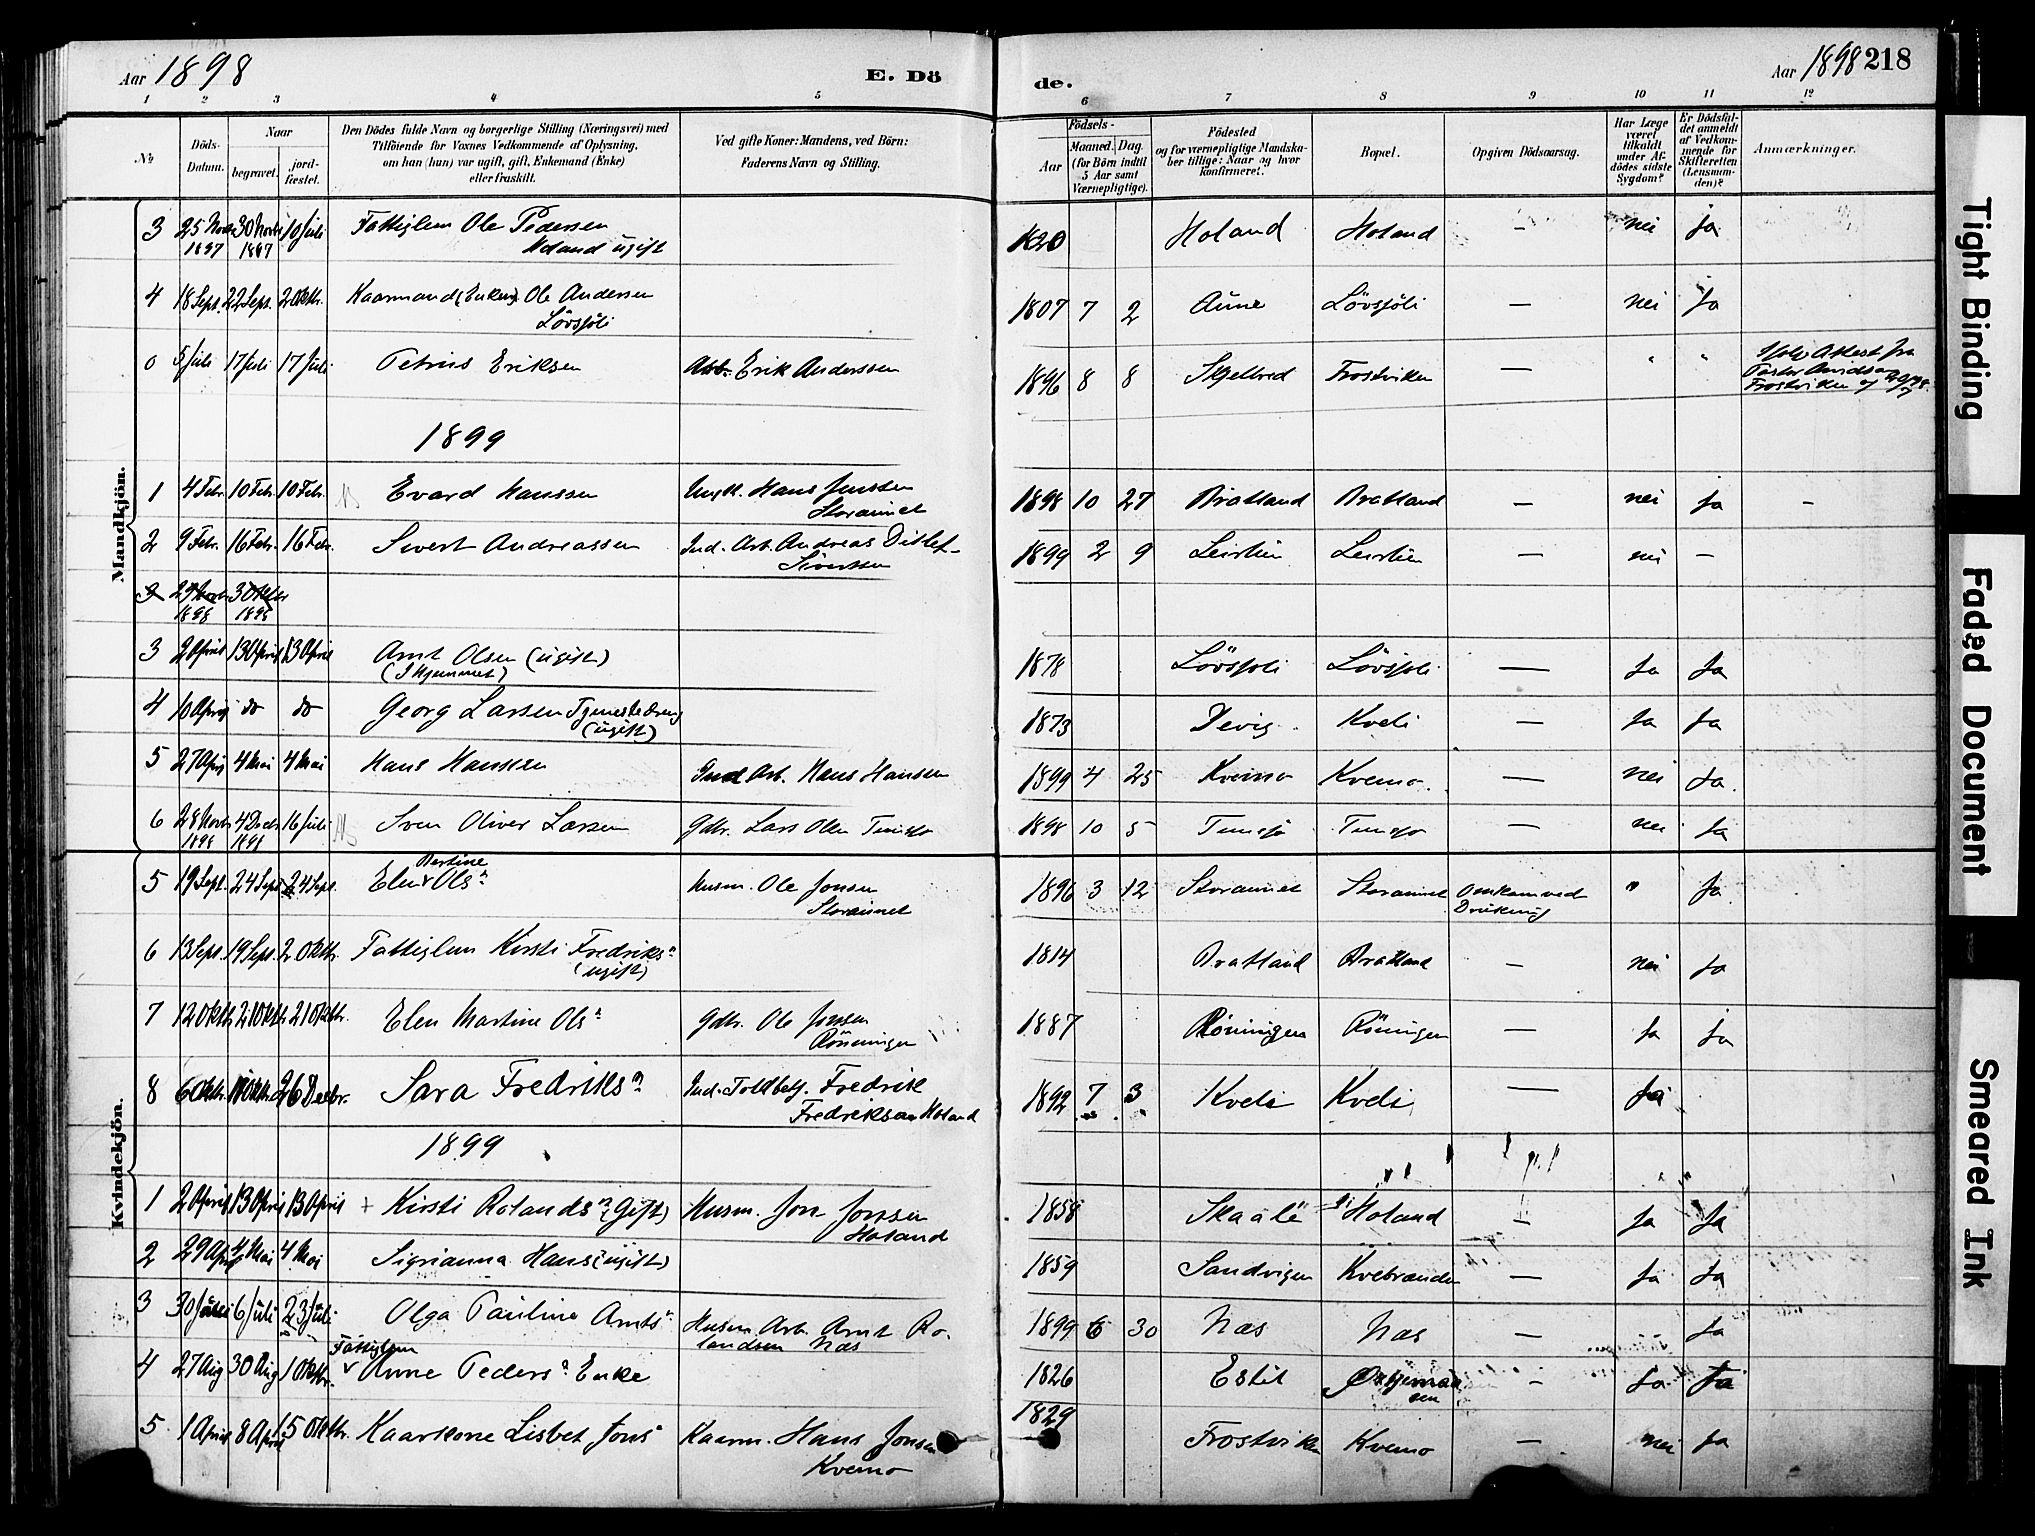 Aar 1898
E. Dö
de.
Aar 1898 218
1 2 3 4 5 6 7 8 9 10 11 12
No
Döds-
Datum.
Naar
begravet.
jord-
fæstet.
Den Dödes fulde Navn og borgerlige Stilling (Næringsvei) med
Tilföiende for Voxnes Vedkommende af Oplysning,
om han (hun) var ugift, gift, Enkemand (Enke)
eller fraskilt.
Ved gifte Koner: Mandens, ved Börn:
Faderens Navn og Stilling.
Födsels-
Aar
Maaned. Dag.
(for Börn indtil
5 Aar samt
Værnepligtige).
Födested
og for værnepligtige Mandska-
ber tillige: Naar og hvor
konfirmeret.
Bopæl.
Opgiven Dödsaarsag.
Har Læge
været
tilkaldt
under Af-
dödes sidste
Sygdom?
Er Dödsfal-
det anmeldt
af Vedkom-
mende for
Skifteretten
(Lensman-
den)?
Anmærkninger.
Mandkjön.
3 25 Novbr 30 Novbr 10 Juli Fattiglem Ole Pedersen 1820 Holand Holand — nei ja
1897 1897 Holand ugift
4 18 Sept. 22 Sept. 2 Oktbr. Kaarmand (Enkem) Ole Andersen 1807 7 2 Aune Lövsjöli — nei ja
Lövsjöli
0 5 Juli 17 Juli 17 Juli Petrus Eriksen Arb. Erik Anderssen 1896 8 8 Skjelbred Frostviken — " " Ifölge Attest fra
Pastor
Frostviken af
1899
1 4 Febr. 10 Febr. 10 Febr. Evard Hanssen Hans Jenssen 1898 10 27 Bratland Bratland — nei ja —
Storaunet
2 9 Febr. 16 Febr. 16 Febr. Sivert Andreassen Ind. Arb. Andreas Ditlef- 1899 2 9 Leirlien Leirlien — nei —
Sivertsen
1898
3 2 April 13 April 13 April Arnt Olsen (ugift) 1878 Lövsjöli Lövsjöli — ja ja
(I Hjemmet)
4 10 April do do Georg Larsen Tjenestedreng 1873 Devig Kveli — ja ja
(ugift)
5 27 April 4 Mai 4 Mai Hans Hanssen Ind Arb. Hans Hanssen 1899 4 25 Kvemo Kvemo. — nei ja.
6 28 Novbr 4 Decbr 16 Juli Sven Oliver Larsen Gdbr. Lars Olsen Tunsjö 1898 10 5 Tunsjö Tunsjö — nei ja
1898 1898
Kvindekjön.
Bertine
5 19 Sept. 24 Sept. 24 Sept. Elen Olsn Husm. Ole Jonsen 1896 3 12 Storaunet Storaunet Omkom ved " ja
Storaunet Drukning
6 13 Sept. 19 Sept. 2 Oktbr. Fattiglem Kirsti Fredriksn 1814 Bratland Bratland — nei ja
(ugift)
7 12 Oktbr. 21 Oktbr. 21 Oktbr. Elen Martine Olsn Gdbr. Ole Jonsen 1887 Rönningen Rönningen — ja ja
Rönningen
8 6 Oktbr. 26 Decbr. Sara Fredriksn Ind. Toldbetj. Fredrik 1892 7 3 Kveli Kveli — ja
Fredriksen Holand
1899
1 2 April 13 April 13 April + Kirsti Rolandsn (Gift) Husm. Jon Jonsen 1858 Skaalö Holand — ja ja
Holand
2 29 April 4 Mai 4 Mai Sigrianna Hans (ugift) 1859 Sandvigen Kvebranden — ja ja
3 30 Juni 6 Juli 23 Juli Olga Pauline Arntsn Husm. Arb. Arnt Ro- 1899 6 30 Næs Næs — ja
landsen Næs
Fattiglem
4 27 Aug 30 Aug 1 Oktbr. Anne Pedersn Enke 1826 Estil — ja ja
5 1 April 8 April 15 Oktbr. Kaarkone Lisbet Jonsn Kaarm. Hans Jonsen 1829 Frostviken Kvemo — nei ja
Kvemo
Tight Binding
Faded Document
Smeared Ink